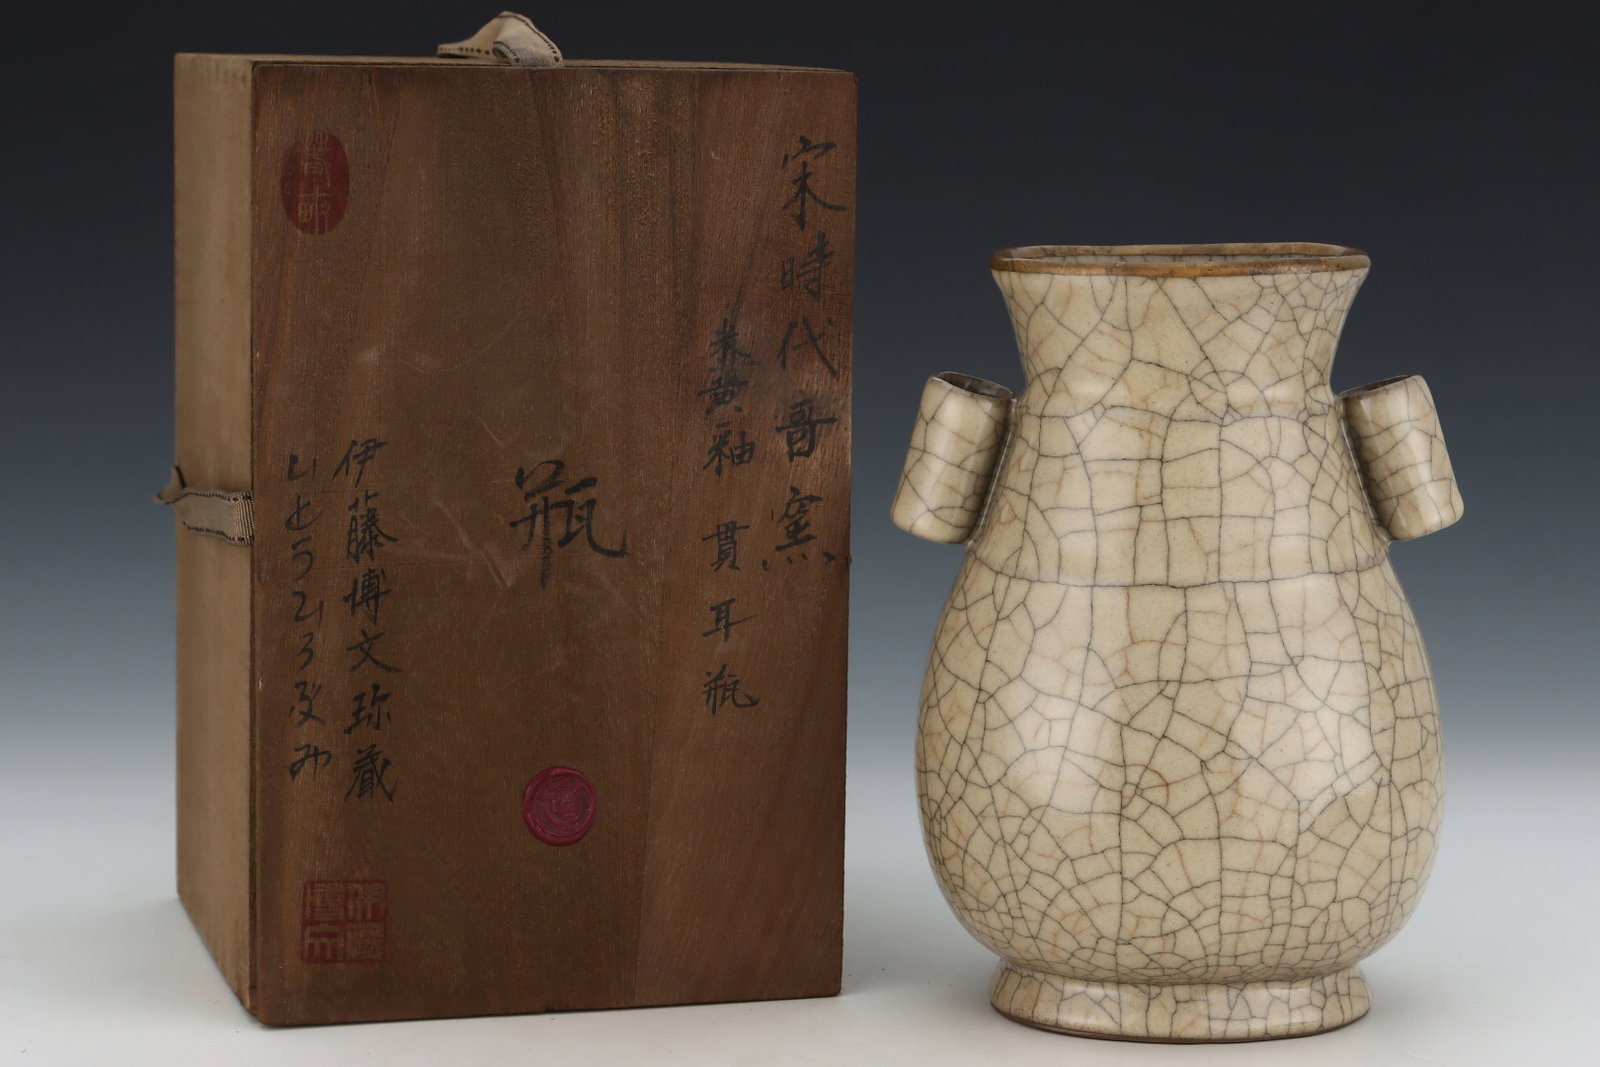 宋時代哥窯
米黄釉貫耳瓶
瓶
伊藤博文珍藏
いとうひろぶみ
春畝
伊藤博文